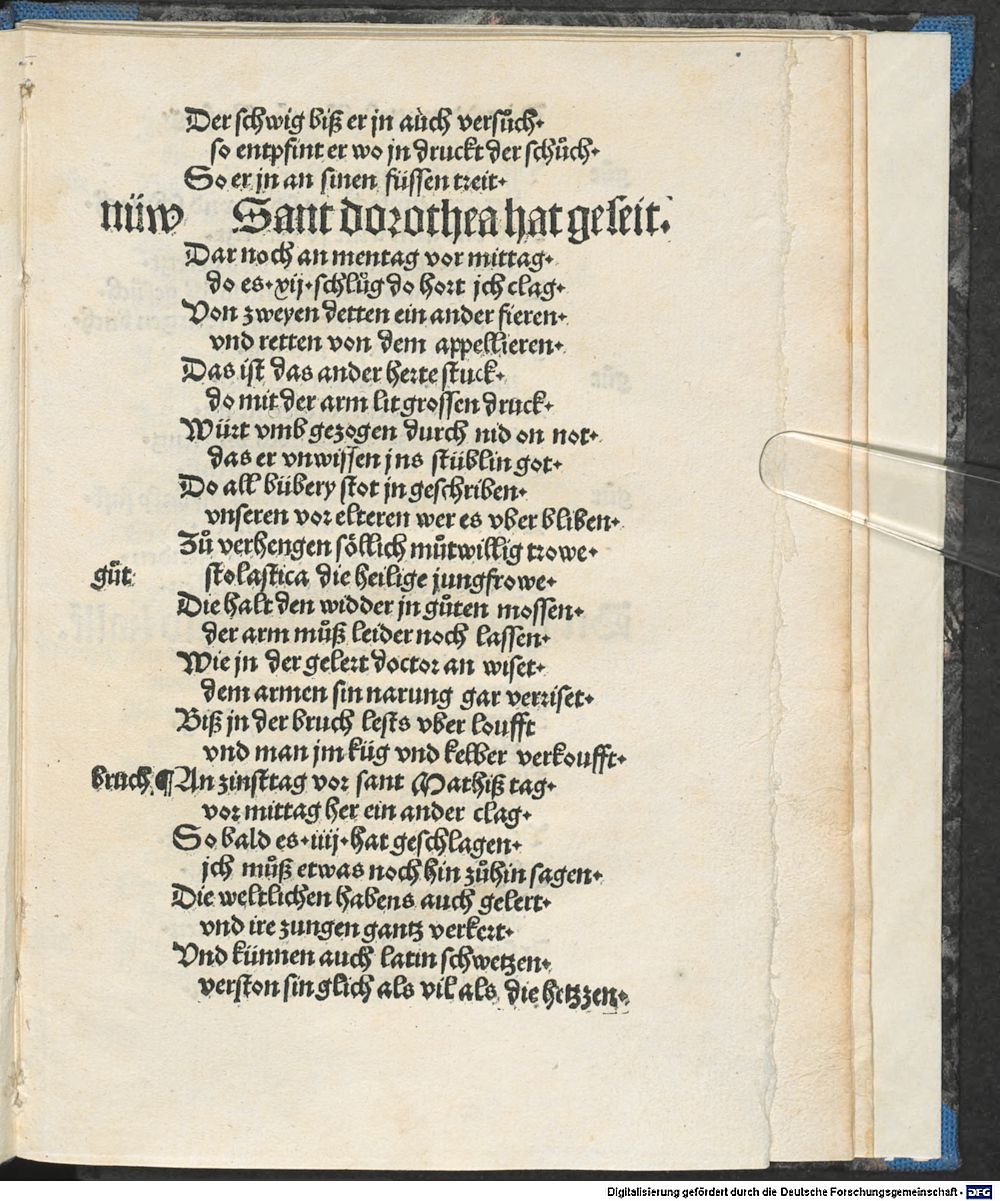 Der schwig biß er jn aůch versůch·
so entpfint er wo jn druckt der schůch·
So er jn an sinen füssen treit·
nüw Sant dorothea hat geseit.
Dar noch an mentag vor mittag·
do es·xij·schlůg do hort jch clag·
Von zweyen detten ein ander fieren·
vnd retten von dem appellieren·
Das ist das ander herte stuck·
do mit der arm lit grossen druck·
Würt vmb gezogen durch nid on not·
das er vnwissen jns stüblin got·
Do all bübery stot jn geschriben·
vnseren vor elteren wer es vber bliben·
Zů verhengen söllich můtwillig trowe·
gůt stolastica die heilige jungfrowe·
Die halt den widder jn gůten mossen·
der arm můß leider noch lassen·
Wie jn der gelert doctor an wiset·
dem armen sin narung gar verriset·
Biß jn der bruch lests vber loufft
vnd man jm küg vnd kelber verkoufft·
bruch ¶ An zinsttag vor sant Mathiß tag·
vor mittag her ein ander clag·
So bald es·iiij·hat geschlagen·
jch můß etwas noch hin zůhin sagen·
Die weltlichen habens auch gelert·
vnd ire zungen gantz verkert·
Vnd künnen auch latin schwetzen·
verston sin glich als vil als die hetzzen·
Digitalisierung gefördert durch die Deutsche Forschungsgemeinschaft - DFG